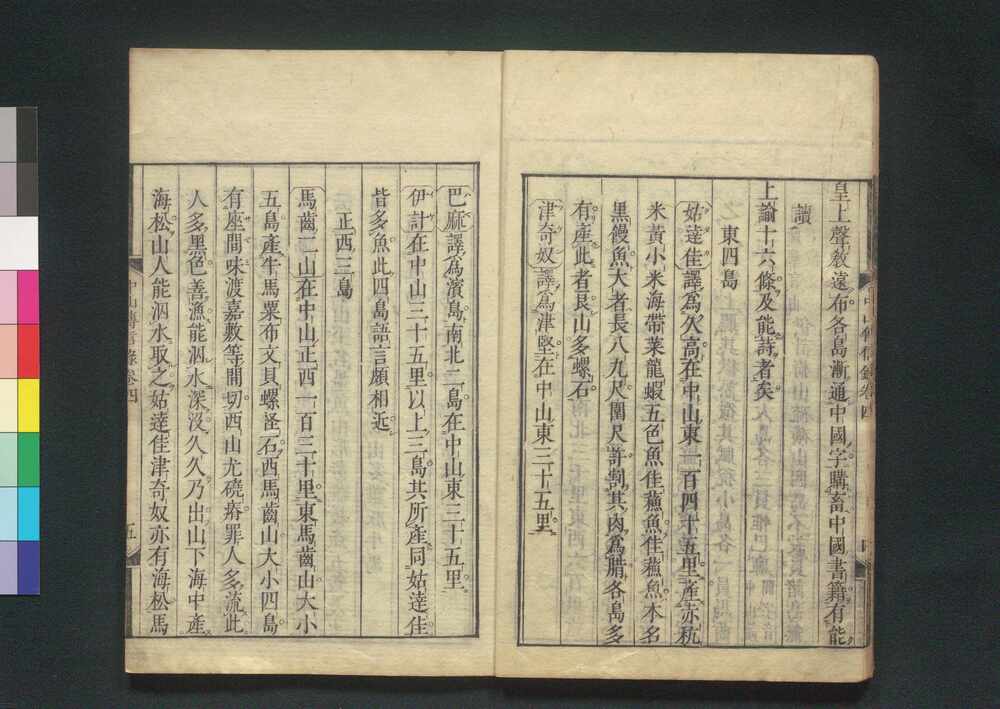 皇上聲教遠布各島漸通中國字購畜中國書籍有能
讀
上諭十六條及能詩者矣
東四島
姑達佳譯爲久高在中山東一百四十五里產赤秔
米黃小米海帶菜龍蝦五色魚佳蘓魚佳蘓魚木名
黑饅魚大者長八九尺圍尺許剖其肉爲腊各島多
有產此者良山多螺石
津奇奴譯爲津堅在中山東三十五里
中山傳信錄卷四
四
巴麻譯爲濱島南北二島在中山東三十五里
伊計在中山三十五里以上三島其所產同姑達佳
皆多魚此四島語言頗相近
正西三島
馬齒二山在中山正西一百三十里東馬齒山大小
五島產牛馬粟布文貝螺怪石西馬齒山大小四島
有座間味渡嘉敷等間切西山尤磽瘠罪人多流此
人多黑色善漁能泅水深沒久久乃出山下海中產
海松山人能泅水取之姑達佳津奇奴亦有海松馬
中山傳信錄卷四
五